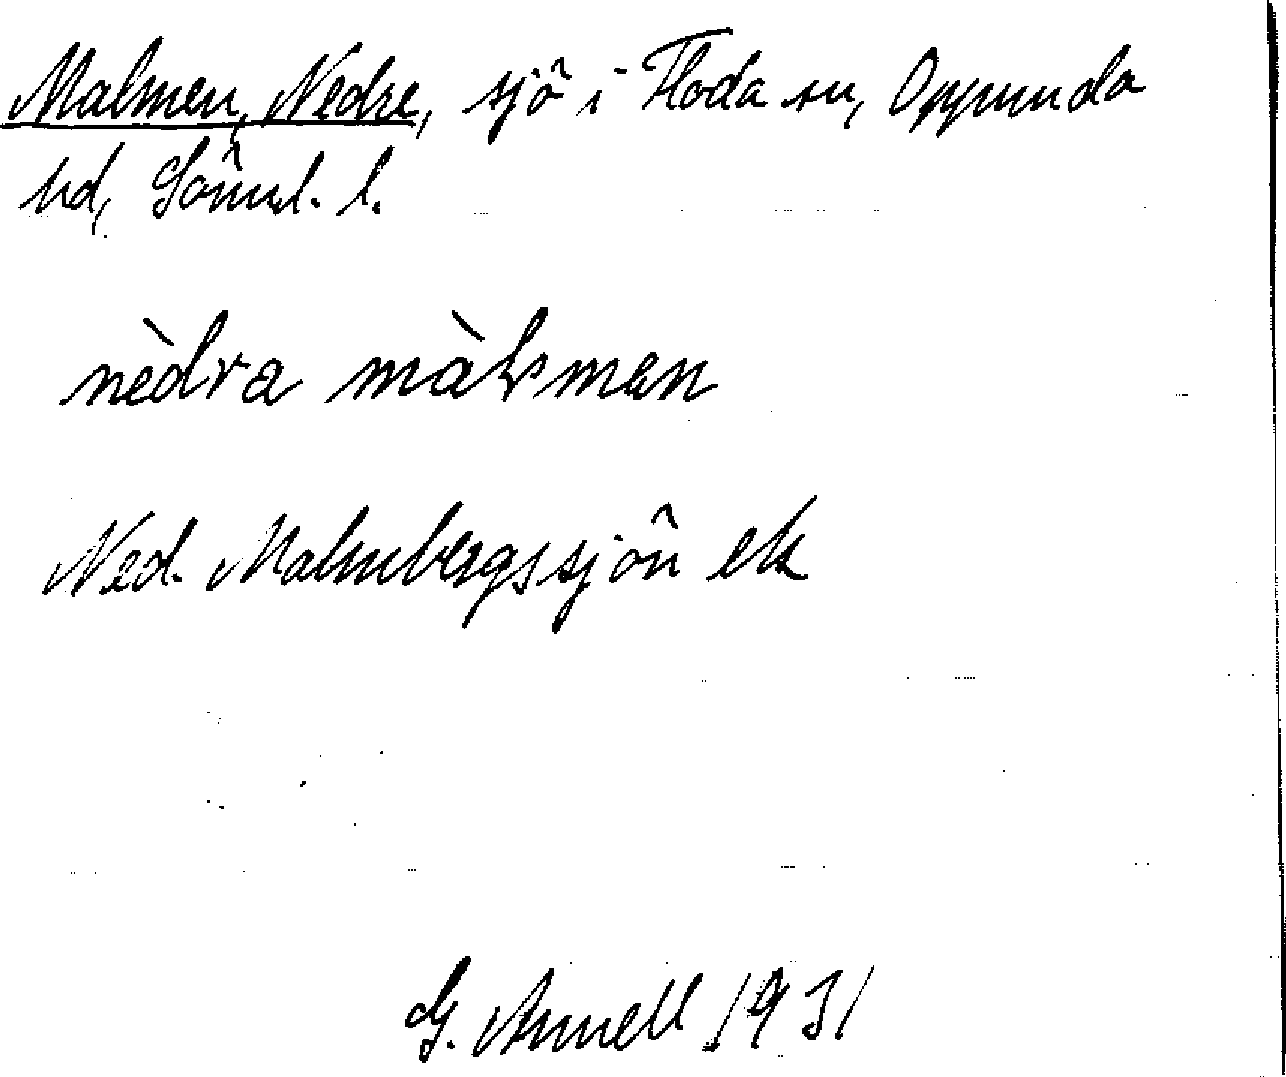 Malmen, Nedre, sjö i Floda sn, Oppunda
hd, Söml. l.
nèdra màlmen
Ned. Malmbergssjön ek
G. Annell 1931